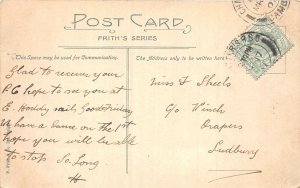 POST CARD
FRITH'S SERIES
This Space may be used for Communication.
The Address
Glad to receive your
P.C hope to see you at
E. Hoddy sails Good Friday
We have a Game on the 1st
hope you will be able
to stop So. Long.
H
Miss F Sheels
c/o Winch
Drapers
Sudbury